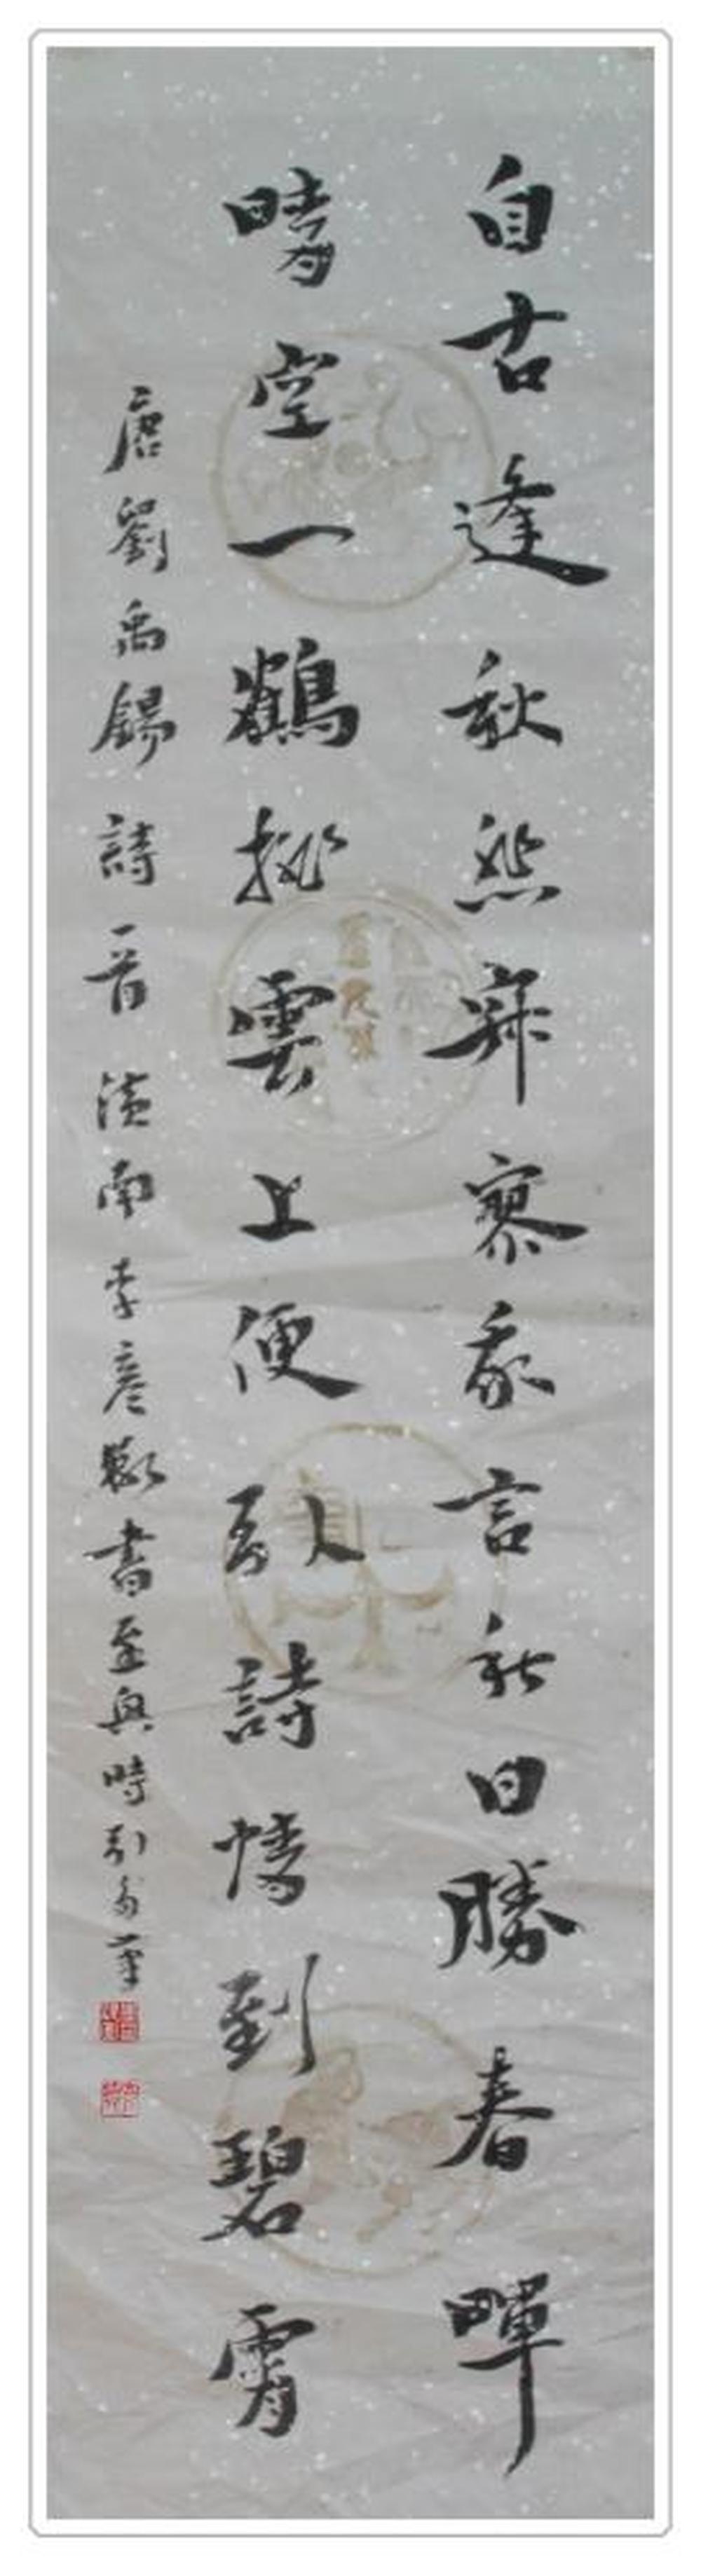 自古逢秋悲寂寥我言秋日勝春暉
晴空一鶴排雲上便引詩情到碧霄
唐劉禹錫詩一首滇南李彥書至興時